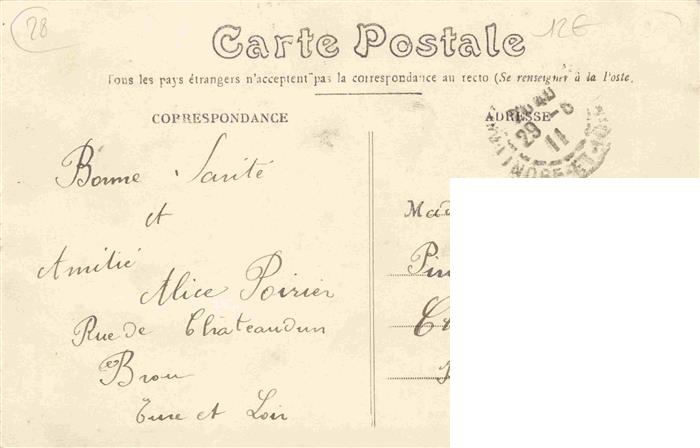 28
12€
Carte Postale
Tous les pays étrangers n'acceptent pas la correspondance au recto (Se renseigner à la Poste.
CORRESPONDANCE
ADRESSE
29 - 8
11
INDRE-ET-
Bonne Santé
et
Amitié
Alice Poirier
Rue de Châteaudun
Brou
Eure et Loir
Mad
Pir